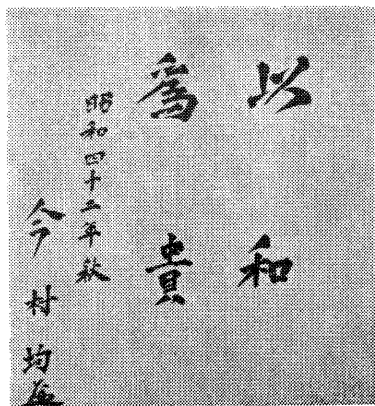 以和
爲貴
昭和四十二年秋
今村均